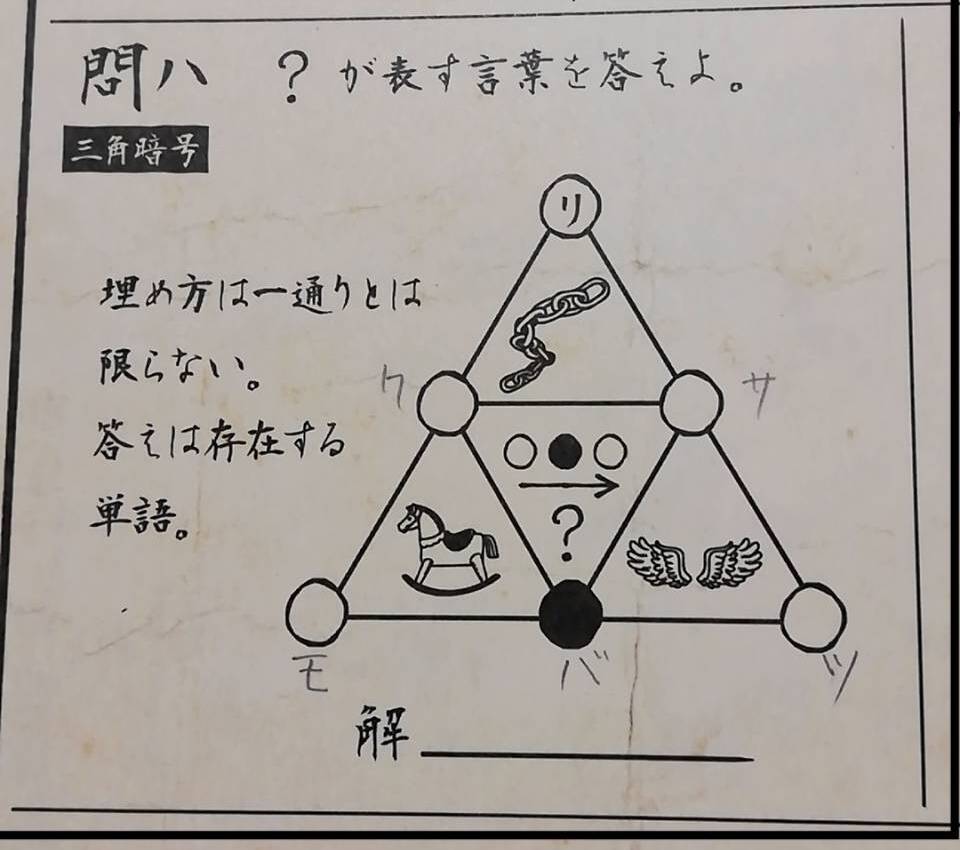 問八 ? が表す言葉を答えよ。
三角暗号
リ
埋め方は一通りとは
限らない。
答えは存在する
単語。
ク
サ
?
モ
バ
ツ
解